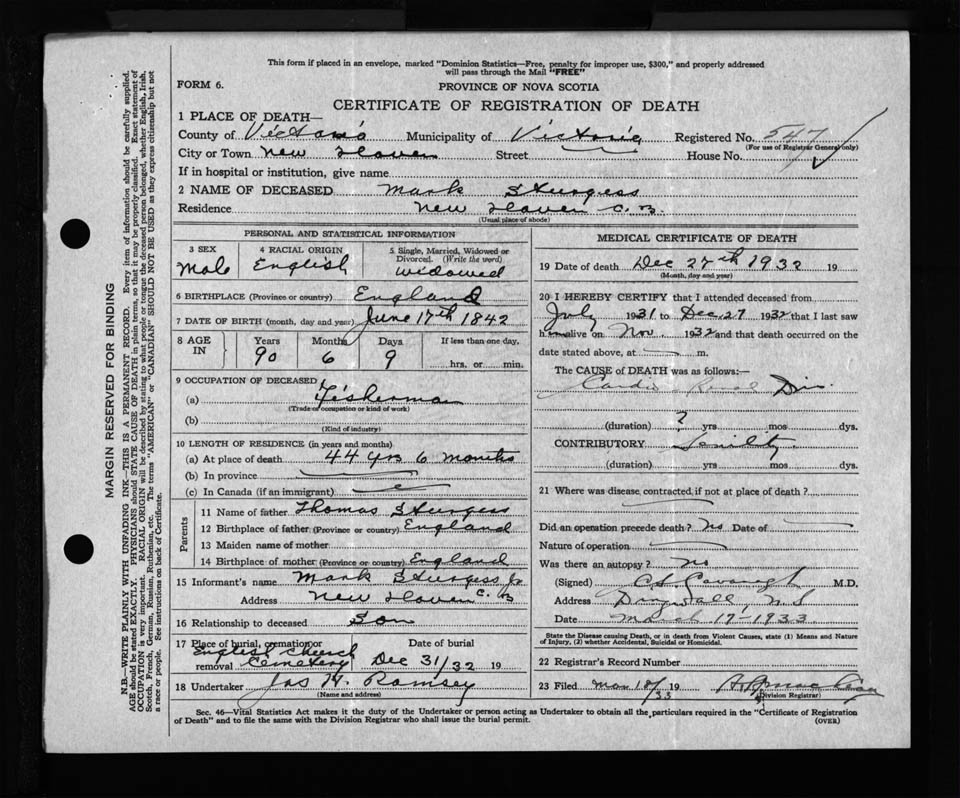 This form if placed in an envelope, marked "Dominion Statistics—Free, penalty for improper use, $300," and properly addressed
will pass through the Mail "FREE"
FORM 6.
PROVINCE OF NOVA SCOTIA
CERTIFICATE OF REGISTRATION OF DEATH
1 PLACE OF DEATH—
County of Victoria Municipality of Victoria Registered No. 547
(For use of Registrar General only)
City or Town New Haven Street House No.
If in hospital or institution, give name
2 NAME OF DECEASED Mark Sturgess
Residence New Haven C. B.
(Usual place of abode)
PERSONAL AND STATISTICAL INFORMATION
3 SEX 4 RACIAL ORIGIN 5 Single, Married, Widowed or
Divorced. (Write the word)
Male English Widowed
6 BIRTHPLACE (Province or country) England
7 DATE OF BIRTH (month, day and year) June 17th 1842
8 AGE IN Years Months Days If less than one day,
90 6 9 hrs. or min.
9 OCCUPATION OF DECEASED
(a) Fisherman
(Trade or occupation or kind of work)
(b)
(Kind of industry)
10 LENGTH OF RESIDENCE (in years and months)
(a) At place of death 44 yrs 6 months
(b) In province
(c) In Canada (if an immigrant)
Parents
11 Name of father Thomas Sturgess
12 Birthplace of father (Province or country) England
13 Maiden name of mother
14 Birthplace of mother (Province or country) England
15 Informant's name Mark Sturgess Jr
Address New Haven C. B
16 Relationship to deceased Son
17 Place of burial, cremation or Date of burial
removal English Church
Cemetery Dec 31/32 19
18 Undertaker Jas H. Ramsey
(Name and address)
MEDICAL CERTIFICATE OF DEATH
19 Date of death Dec 27th 1932 19
(Month, day and year)
20 I HEREBY CERTIFY that I attended deceased from
July 1931 to Dec. 27 1932 that I last saw
him alive on Nov. 1932 and that death occurred on the
date stated above, at m.
The CAUSE of DEATH was as follows:—
Cardio Renal Dis.
(duration) ? yrs mos dys.
CONTRIBUTORY Senility
(duration) yrs mos dys.
21 Where was disease contracted, if not at place of death?
Did an operation precede death? No Date of
Nature of operation
Was there an autopsy? No
(Signed) Cavanagh M.D.
Address Dingwall, N.S
Date March 17-1933
State the Disease causing Death, or in death from Violent Causes, state (1) Means and Nature
of Injury, (2) whether Accidental, Suicidal or Homicidal.
22 Registrar's Record Number
23 Filed Mar 18/33 19
Division Registrar)
Sec. 46—Vital Statistics Act makes it the duty of the Undertaker or person acting as Undertaker to obtain all the particulars required in the "Certificate of Registration
of Death" and to file the same with the Division Registrar who shall issue the burial permit.
(OVER)
MARGIN RESERVED FOR BINDING
N.B.—WRITE PLAINLY WITH UNFADING INK—THIS IS A PERMANENT RECORD. Every item of information should be carefully supplied.
AGE should be stated EXACTLY. PHYSICIANS should STATE CAUSE OF DEATH in plain terms, so that it may be properly classified. Exact statement of
OCCUPATION is very important. RACIAL ORIGIN will be described by stating to what people or tongue the deceased person belonged, whether English, Irish,
Scotch, French, German, Russian, Ruthenian, etc. The terms "AMERICAN" or "CANADIAN" SHOULD NOT BE USED as they express citizenship but not
a race or people. See instructions on back of Certificate.